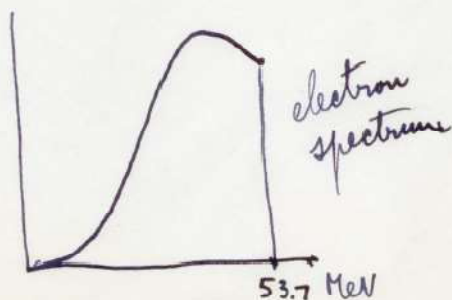 electron
spectrum
53.7 MeV